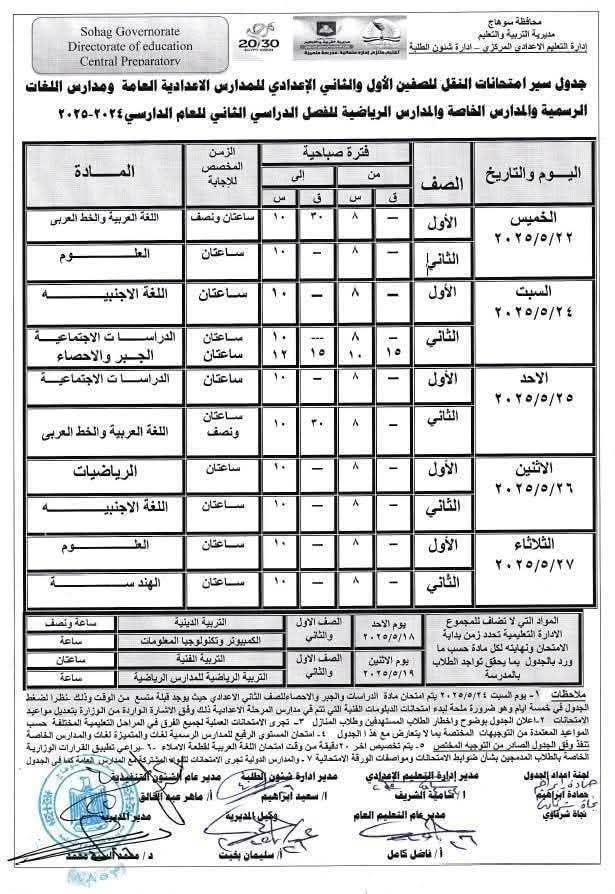 Sohag Governorate
Directorate of education
Central Preparatory
20/30
محافظة سوهاج
مديرية التربية والتعليم
إدارة التعليم الاعدادي المركزي - ادارة شئون الطلبة
جدول سير امتحانات النقل للصفين الأول والثاني الإعدادي للمدارس الاعدادية العامة ومدارس اللغات
الرسمية والمدارس الخاصة والمدارس الرياضية للفصل الدراسي الثاني للعام الدارسي ٢٠٢٤-٢٠٢٥
اليوم والتاريخ الصف فترة صباحية الزمن المخصص للإجابة المادة
من إلى
ق س ق س
الخميس ٢٠٢٥/٥/٢٢ الأول — ٨ ٣٠ ١٠ ساعتان ونصف اللغة العربية والخط العربى
الثاني — ٨ — ١٠ ساعتان العلوم
السبت ٢٠٢٥/٥/٢٤ الأول — ٨ — ١٠ ساعتان اللغة الاجنبيه
الثاني — ٨ --- ١٠ ساعتان الدراسات الاجتماعية
١٥ ١٠ ١٥ ١٢ ساعتان الجبر والاحصاء
الاحد ٢٠٢٥/٥/٢٥ الأول — ٨ — ١٠ ساعتان الدراسات الاجتماعية
الثاني — ٨ ٣٠ ١٠ ساعتان ونصف اللغة العربية والخط العربى
الاثنين ٢٠٢٥/٥/٢٦ الأول — ٨ — ١٠ ساعتان الرياضيات
الثاني — ٨ — ١٠ ساعتان اللغة الاجنبيه
الثلاثاء ٢٠٢٥/٥/٢٧ الأول — ٨ — ١٠ ساعتان العلوم
الثاني — ٨ — ١٠ ساعتان الهندسة
المواد التي لا تضاف للمجموع
الادارة التعليمية تحدد زمن بداية
الامتحان ونهايته لكل مادة حسب ما
ورد بالجدول بما يحقق تواجد الطلاب
بالمدرسة
يوم الاحد ٢٠٢٥/٥/١٨ الصف الاول والثاني التربية الدينية ساعة ونصف
الكمبيوتر وتكنولوجيا المعلومات ساعة
يوم الاثنين ٢٠٢٥/٥/١٩ الصف الاول والثاني التربية الفنية ساعتان
التربية الرياضية للمدارس الرياضية ساعة
ملاحظات ١- يوم السبت ٢٠٢٥/٥/٢٤ يتم امتحان مادة الدراسات والجبر والاحصاء للصف الثاني الاعدادي حيث يوجد فيلة متسع من الوقت وذلك نظرا لضغط
الجدول في خمسة ايام وهو ضرورة ملحة لبدء امتحانات الدبلومات الفنية التي تتم في مدارس المرحلة الاعدادية ذلك وفق الاشارة الواردة من الوزارة بتعديل مواعيد
الامتحانات ٢- اعلان الجدول بوضوح واخطار الطلاب المستهدفين وطلاب المنازل ٣- تجرى الامتحانات العملية لجميع الفرق في المراحل التعليمية المختلفة حسب
المواعيد المعتمدة من التوجيهات المختصة بما لا يتعارض مع هذا الجدول ٤- امتحان المستوي الرفيع للمدارس الرسمية لغات والمتميزة لغات والمدارس الخاصة
تنفذ وفق الجدول الصادر من التوجيه المختص ٥- يتم تخصيص اخر ٢٠ دقيقة من وقت امتحان اللغة العربية لقطعة الاملاء ٦- يراعي تطبيق القرارات الوزارية
الخاصة بالطلاب المدمجين بشأن ضوابط الامتحانات ومواصفات الورقة الامتحانية ٧- والمدارس الدولية تجرى امتحانات المواد المشتركة مع المدارس العامة كما في الجدول
لجنة اعداد الجدول مدير إدارة التعليم الإعدادي مدير ادارة شئون الطلبة مدير عام الشئون التنفيذية
حمادة ابراهيم أ/ شاملية الشريف أ/ سعيد ابراهيم أ/ ماهر عبد الخالق
نجاة شرقاوي مدير عام التعليم العام وكيل المديرية مدير المديرية
أ/ فاضل كامل أ/ سليمان بخيت د / محمد السيد محمد